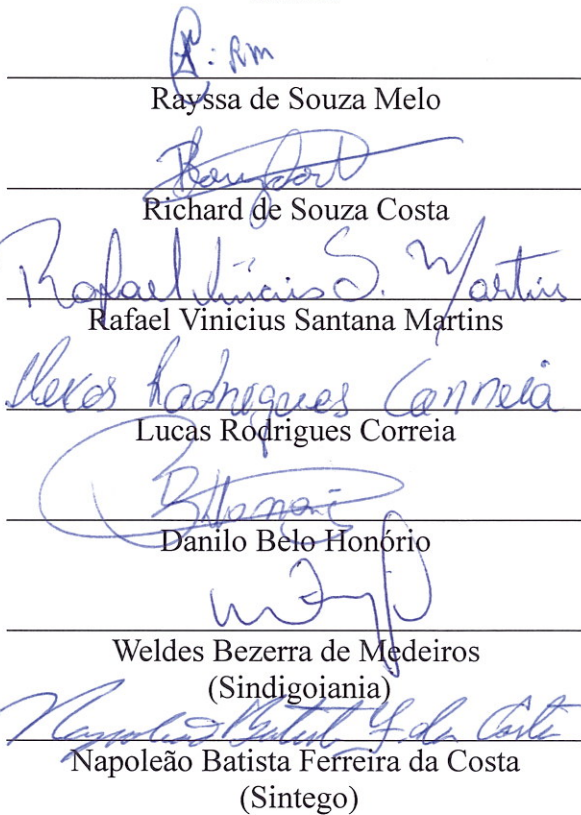 : RM
Rayssa de Souza Melo
Richard de Souza Costa
Rafael Vinicius S. Martins
Rafael Vinicius Santana Martins
Rodrigues Correia
Lucas Rodrigues Correia
Danilo Belo Honório
Weldes Bezerra de Medeiros
(Sindigoiania)
Napoleão Batist F. da Costa
Napoleão Batista Ferreira da Costa
(Sintego)